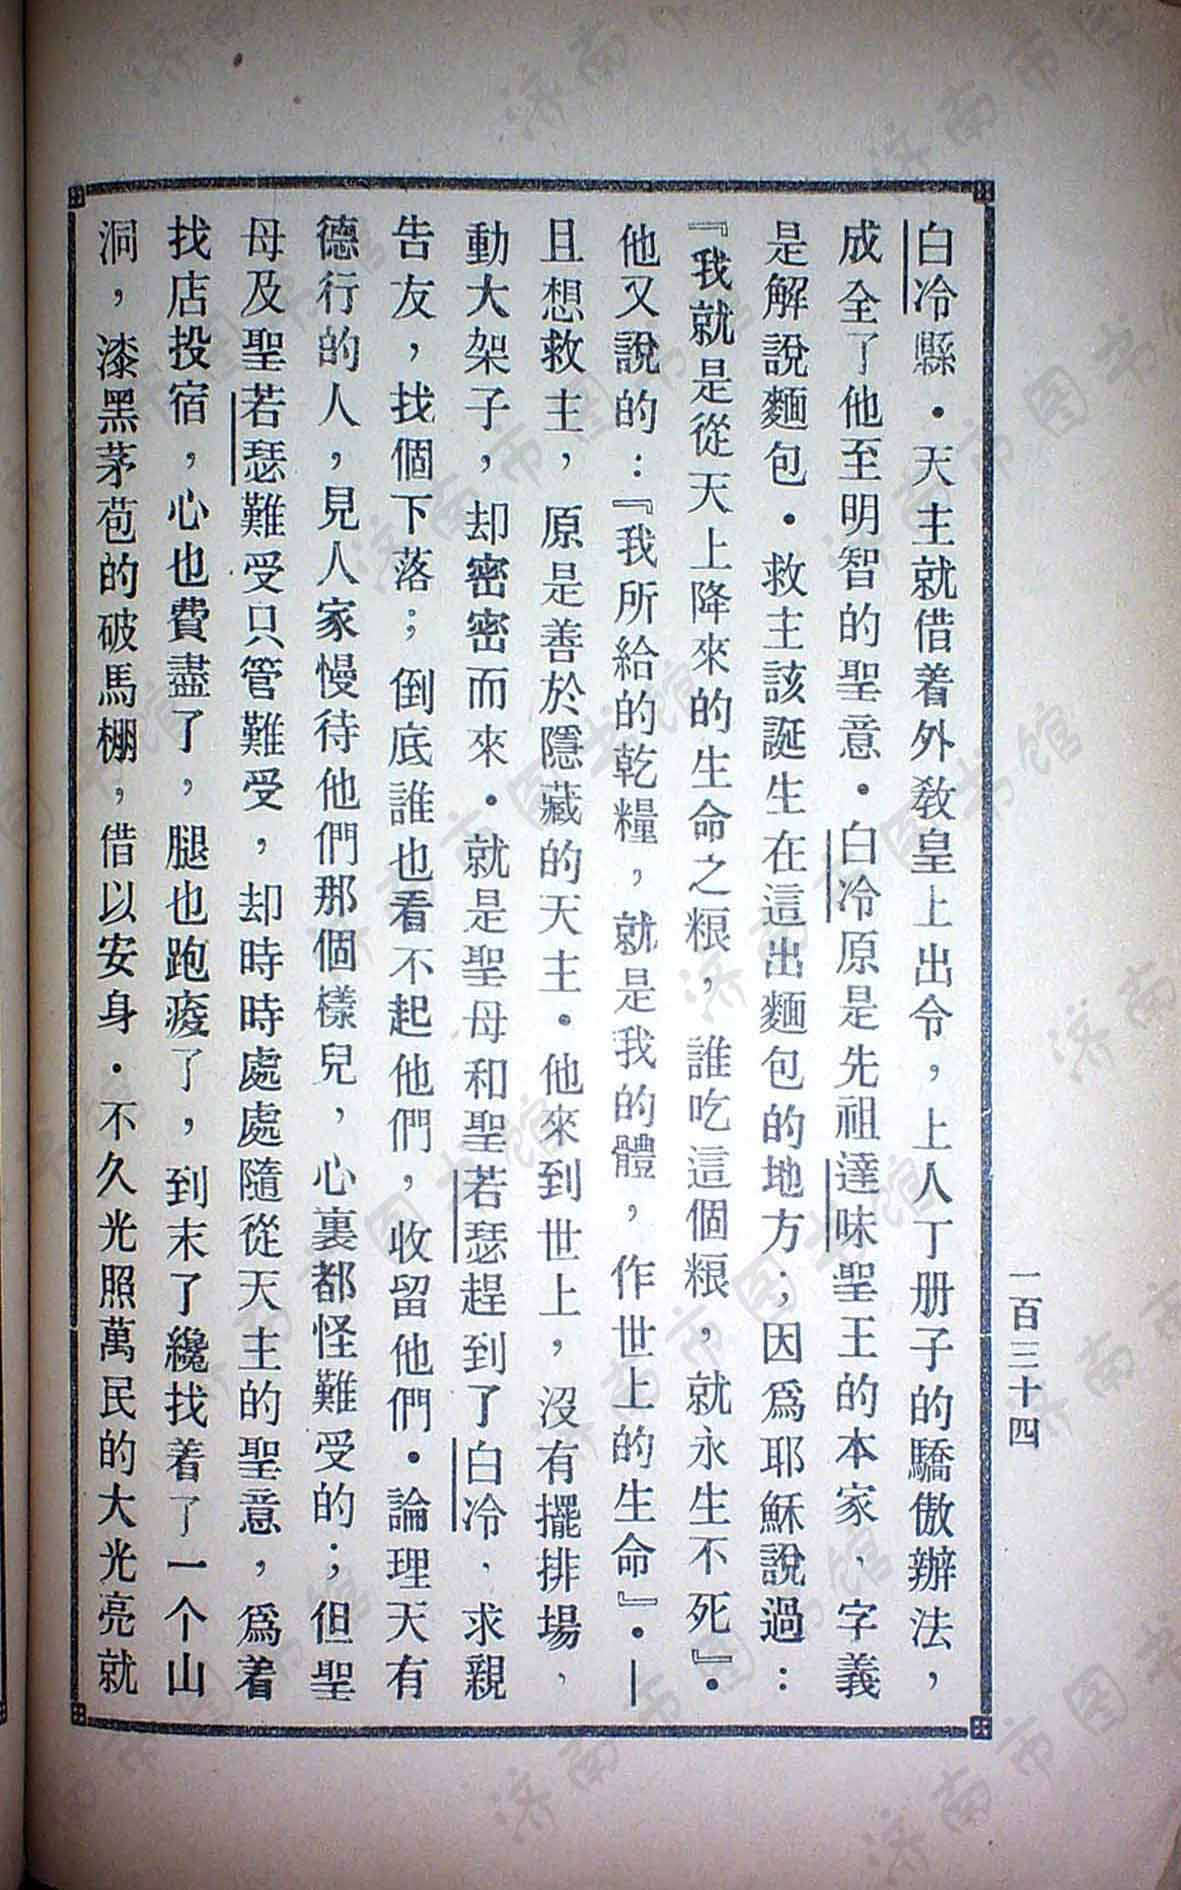 一百三十四
白冷縣．天主就借着外教皇上出令，上人丁册子的驕傲辦法，
成全了他至明智的聖意．白冷原是先祖達味聖王的本家、字義
是解說麵包．救主該誕生在這出麵包的地方；因爲耶穌說過：
『我就是從天上降來的生命之粮，誰吃這個粮，就永生不死』．
他又說的：『我所給的乾糧，就是我的體，作世上的生命』．—
且想救主，原是善於隱藏的天主．他來到世上，沒有擺排場、
動大架子，却密密而來．就是聖母和聖若瑟趕到了白冷、求親
告友，找個下落；倒底誰也看不起他們，收留他們．論理天有
德行的人，見人家慢待他們那個樣兒，心裏都怪難受的；但聖
母及聖若瑟難受只管難受，却時時處處隨從天主的聖意，爲着
找店投宿，心也費盡了，腿也跑痠了，到末了纔找着了一个山
洞，漆黑茅苞的破馬棚，借以安身．不久光照萬民的大光亮就
济南市图书馆